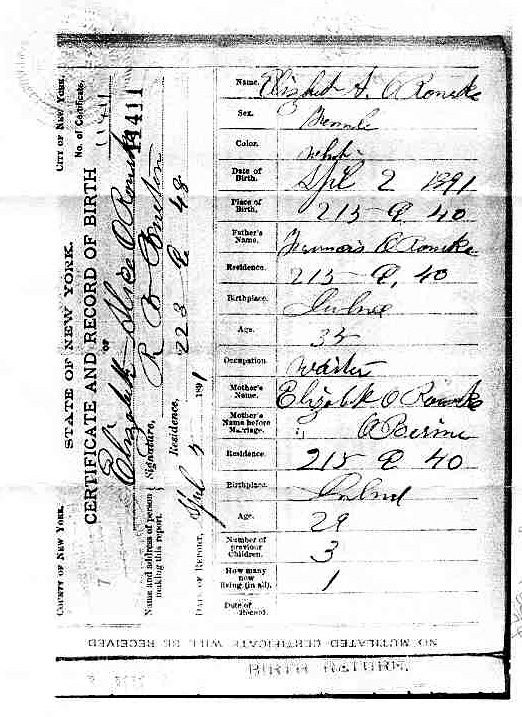 STATE OF NEW YORK.
COUNTY OF NEW YORK.
CITY OF NEW YORK.
CERTIFICATE AND RECORD OF BIRTH
No. of Certificate.
11411
11411
OF
Elizabeth Alice O Rourke
Name and address of person making this report.
Signature,
R B
Residence,
223 E 48
DATE OF REPORT,
Apl 5 1891
Name. Elizabeth A. O Rourke
Sex. Female
Color. White
Date of Birth. Apl 2 1891
Place of Birth, 215 E 40
Father's Name. Francis O Rourke
Residence. 215 E. 40
Birthplace. Ireland
Age. 35
Occupation. Waiter
Mother's Name. Elizabeth O Rourke
Mother's Name before Marriage. " O Beirne
Residence. 215 E 40
Birthplace. Ireland
Age. 29
Number of previous Children. 3
How many now living (in all). 1
Date of Record.
NO MUTILATED CERTIFICATE WILL BE RECEIVED
BIRTH RETURN.